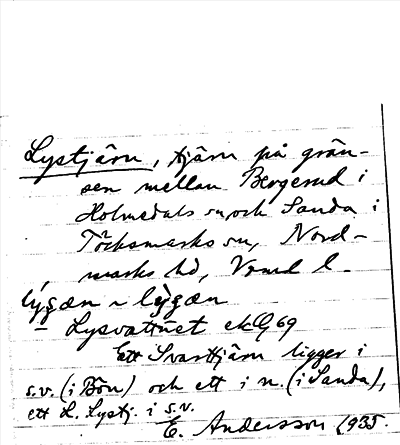 Lystjärn, tjärn på grän-
sen mellan Bergerud i
Holmedals sn och Sanda i
Töcksmarks sn, Nord-
marks hd, Vrml l.
lýgæn ~ lỳgæn
– Lysvattnet ekG 69
Ett Svarttjärn ligger i
s.v. (i Bön) och ett i n. (i Sanda),
ett L. Lystj. i s.v.
E. Andersson 1935.